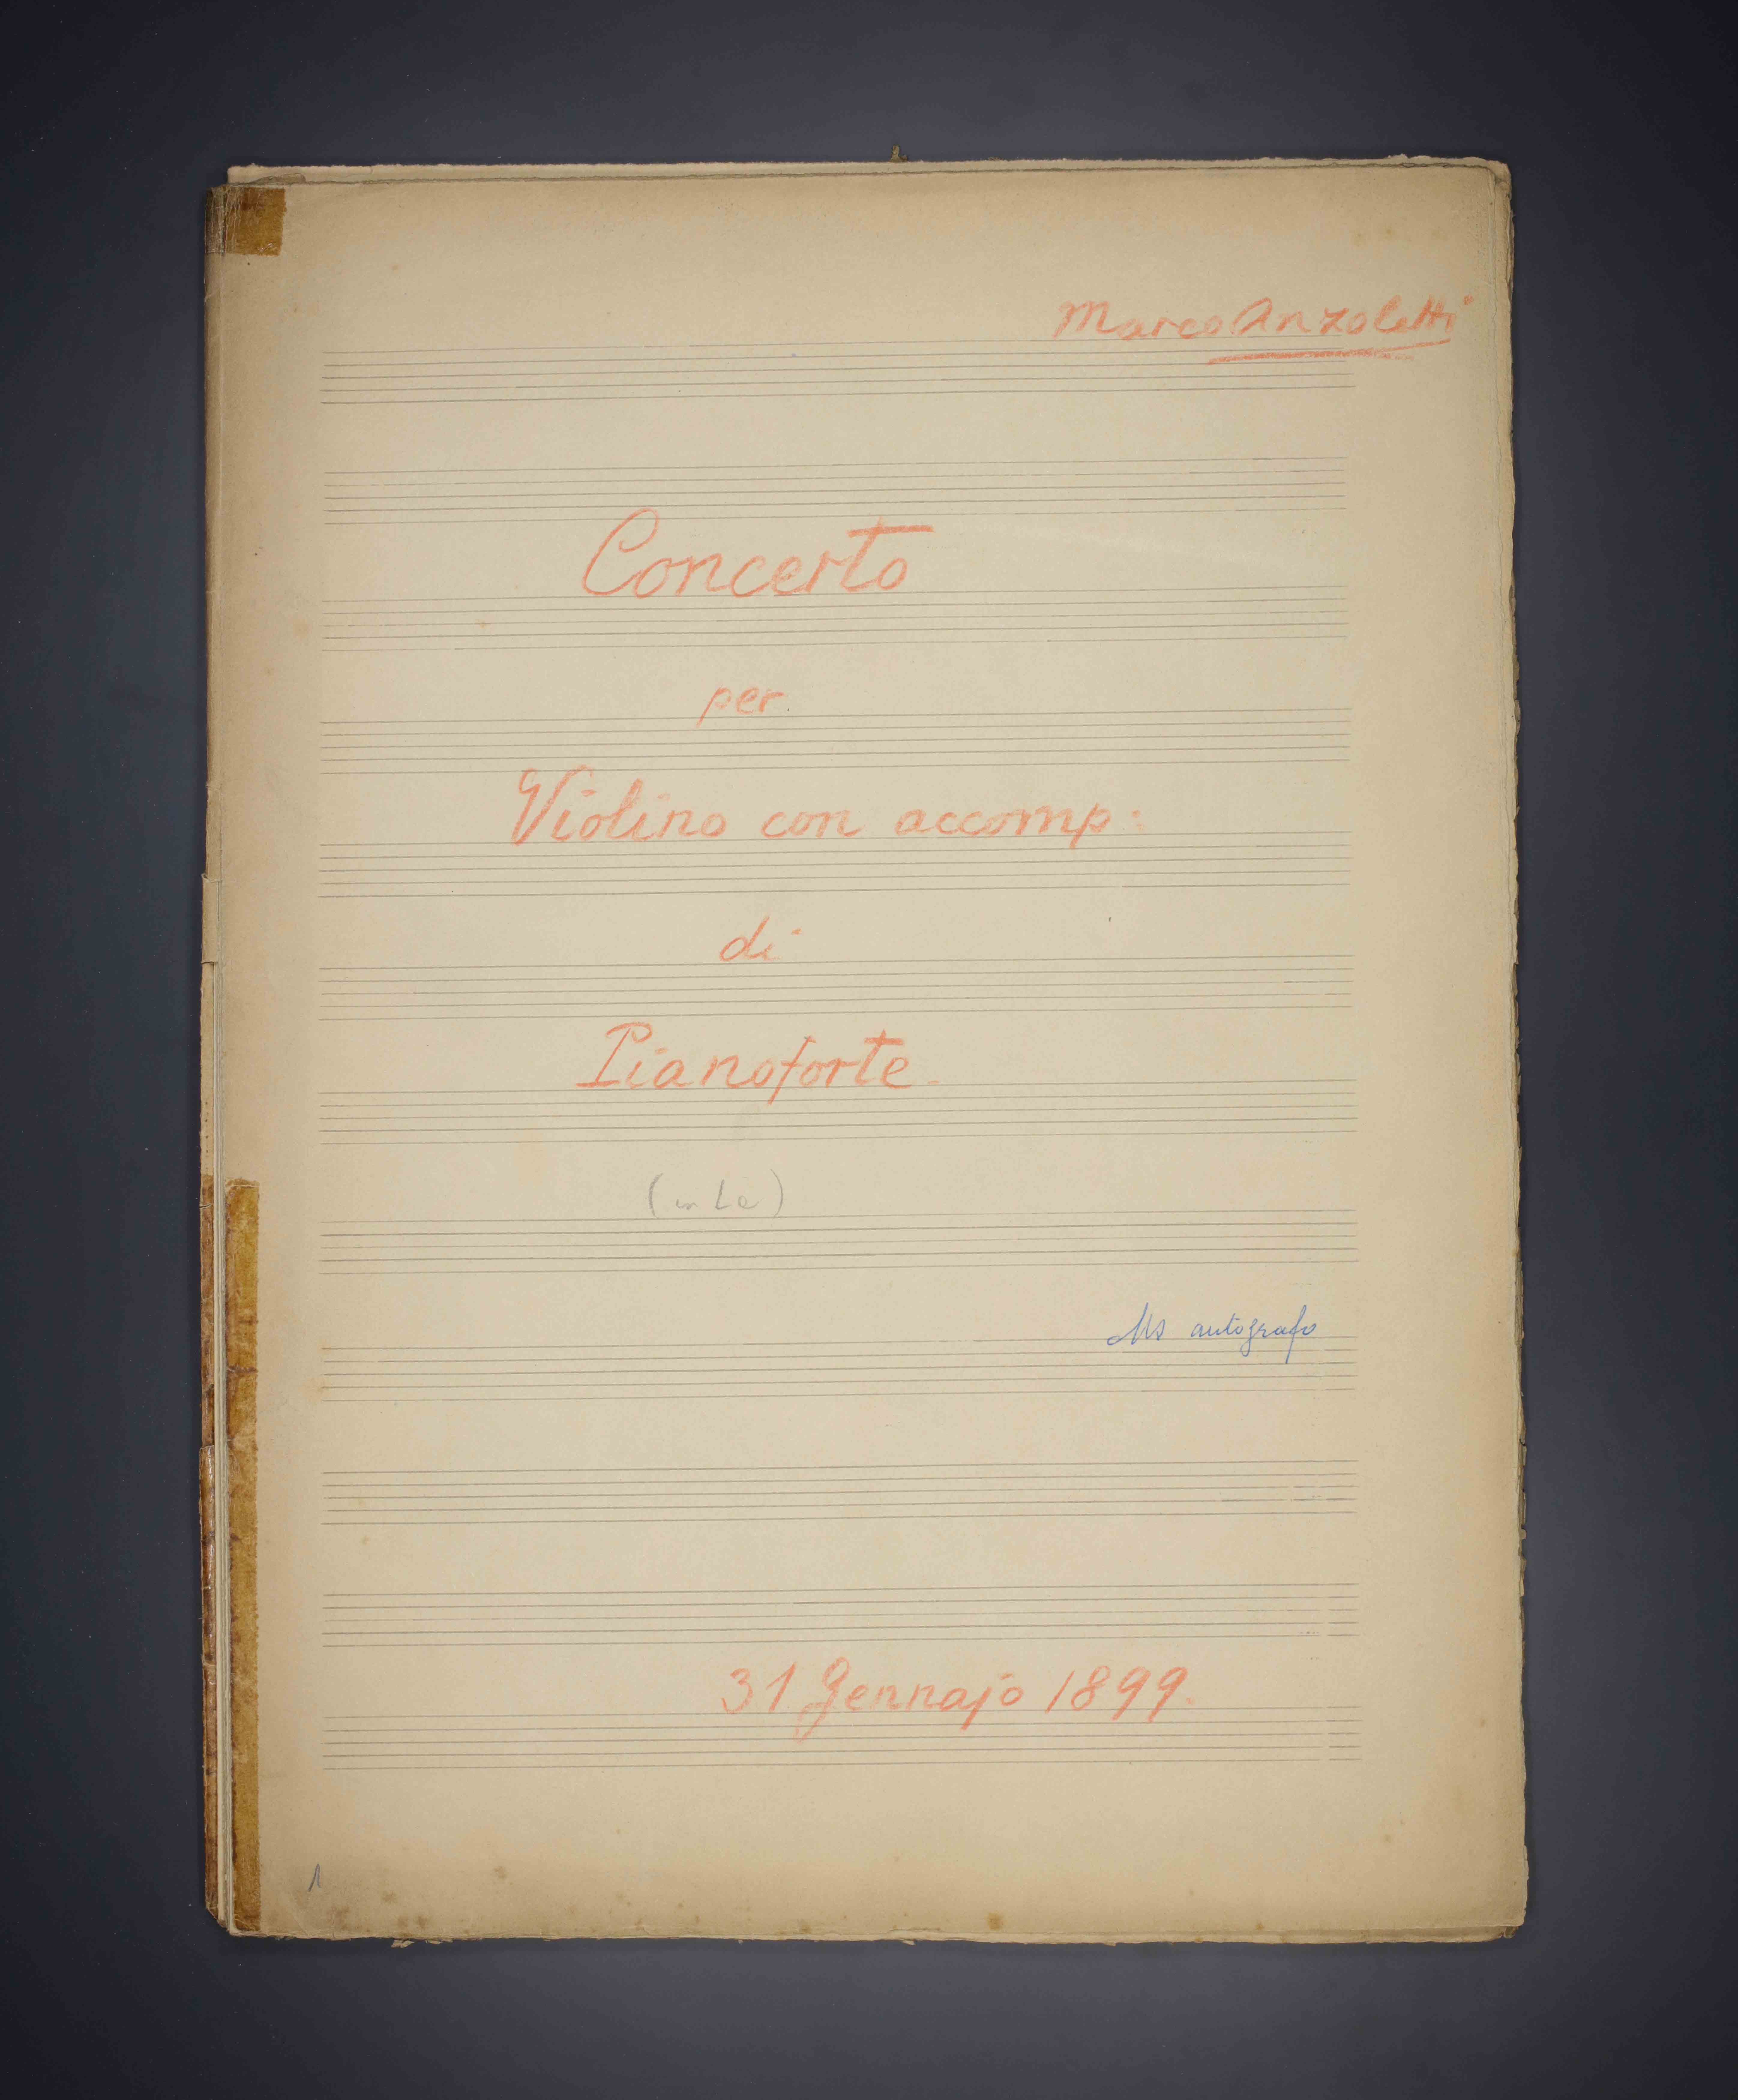 Marco Anzoletti
Concerto
per
Violino con accomp:
di
Pianoforte.
(in La)
Ms autografo
31 Gennajo 1899.
1